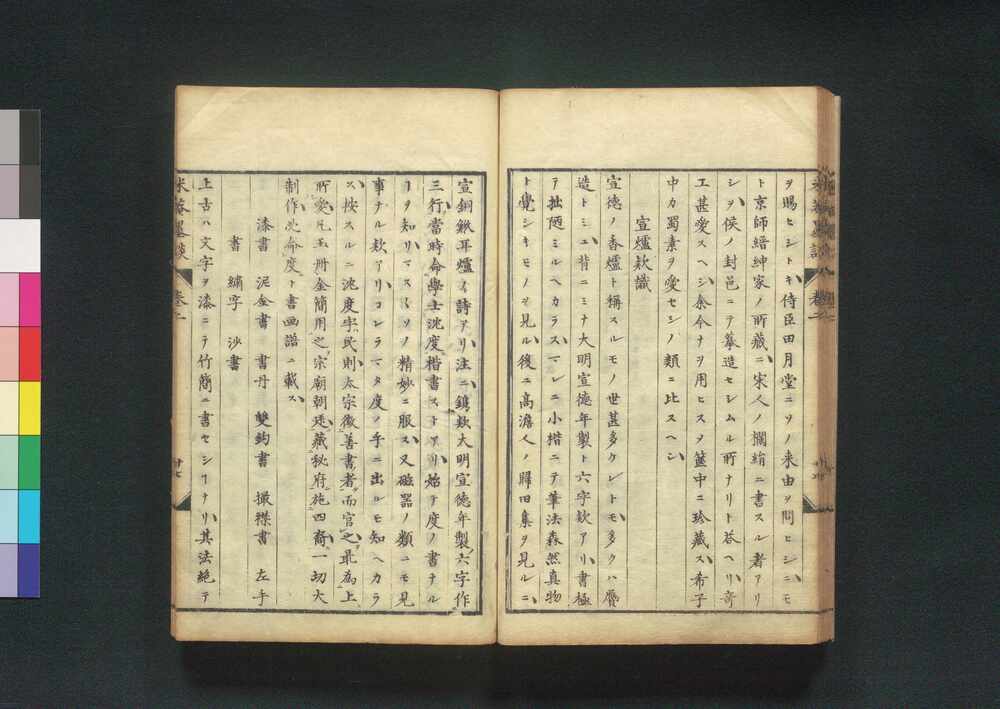 ヲ賜ヒシトキ、侍臣田月堂ニソノ来由ヲ問ヒシニ、モ
ト京師縉紳家ノ所藏ニ、宋人ノ欄絹ニ書スル者アリ
シヲ、侯ノ封邑ニテ摹造セシムル所ナリト荅ヘリ、竒
工甚愛スヘシ、余今ナヲ用ヒスヲ篋中ニ珍藏ス、希子
中カ蜀素ヲ愛セシノ類ニ比スヘシ、
宣爐欵識
宣徳ノ香爐ト稱スルモノ、世甚多ケレトモ、多クハ贋
造トミユ、背ニミナ大明宣徳年製ト六字欵アリ、書極
テ拙陋ミルヘカラス、マレニ小楷ニテ筆法森然真物
ト覺シキモノヲ見ル、後ニ高澹人ノ歸田集ヲ見ルニ、
宣銅鈲耳爐ノ詩アリ、注ニ、鎸欵大明宣徳年製六字作
三行、當時命學士沈度楷書ストアリ、始テ度ノ書ナル
ヿヲ知リ、マスヽソノ精妙ニ服ス、又磁器ノ類ニモ見
事ナル欵アリ、コレラマタ度ノ手ニ出ルモ知ヘカラ
ス、按スルニ沈度字民則、太宗徴善書者、而官之、最為上
所愛、凡玉冊金簡用之、宗廟朝廷、藏秘府、施四裔、一切大
制作、必命度、ト書画譜ニ載ス、
漆書 泥金書 書丹 雙鈎書 撮襟書 左手
書 繍字 沙書
上古ハ文字ヲ漆ニテ竹簡ニ書セシヿナリ、其法絶テ
米菴墨談 巻二